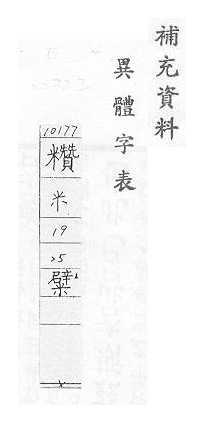 補充資料
異體字表
10177
米贊
米
19
25
糪